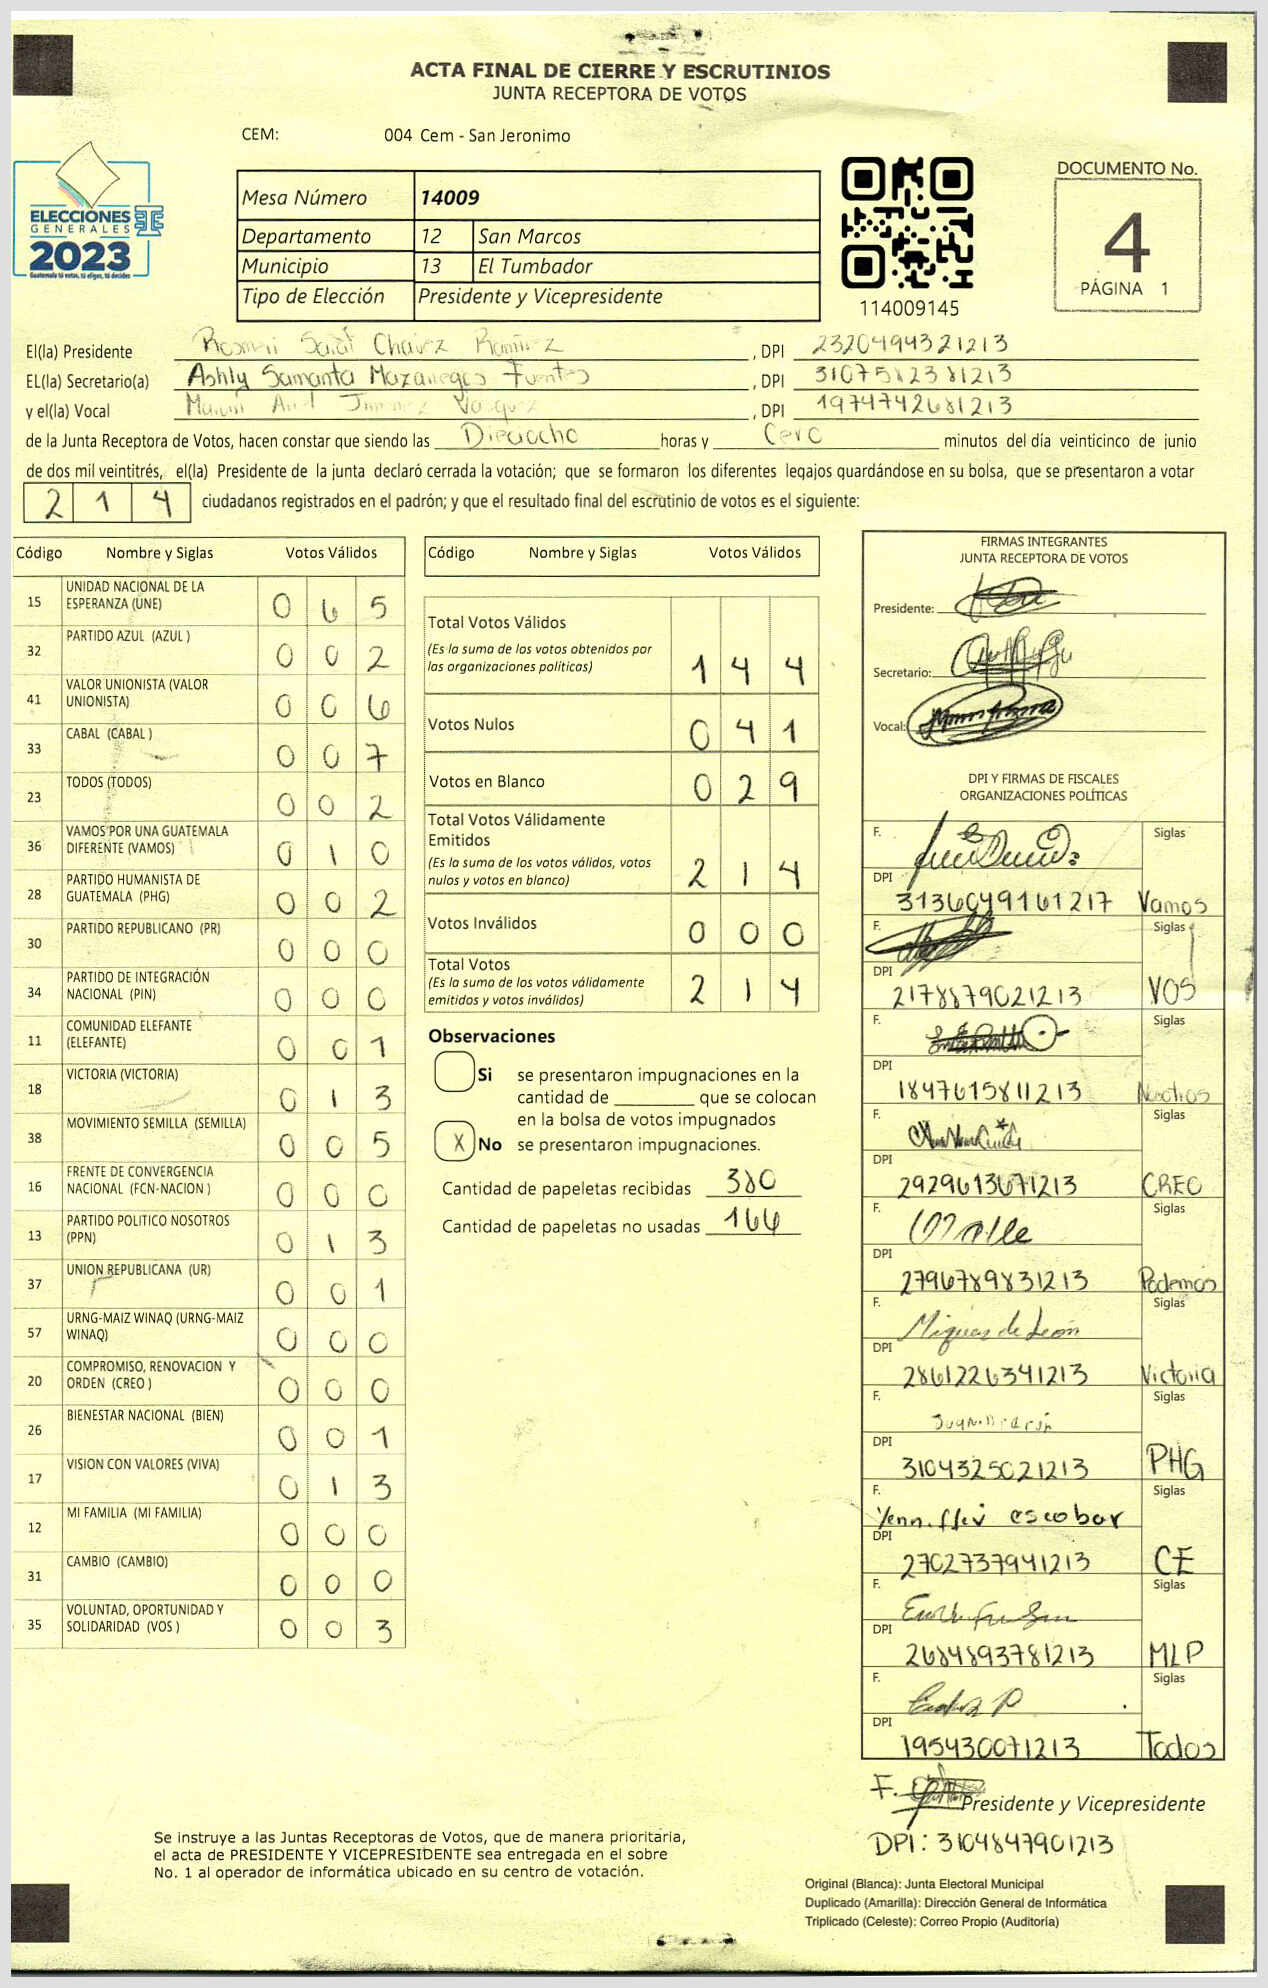 ACTA FINAL DE CIERRE Y ESCRUTINIOS
JUNTA RECEPTORA DE VOTOS
CEM: 004 Cem - San Jeronimo
ELECCIONES
GENERALES
2023
Guatemala tú votas, tú eliges, tú decides
Mesa Número 14009
Departamento 12 San Marcos
Municipio 13 El Tumbador
Tipo de Elección Presidente y Vicepresidente
114009145
DOCUMENTO No.
4
PÁGINA 1
El(la) Presidente Chávez Ramírez , DPI 2320494321213
EL(la) Secretario(a) Ashly Samanta Mazariegos Fuentes , DPI 3107582381213
y el(la) Vocal Vasquez , DPI 1974742681213
de la Junta Receptora de Votos, hacen constar que siendo las Dieciocho horas y Cero minutos del día veinticinco de junio
de dos mil veintitrés, el(la) Presidente de la junta declaró cerrada la votación; que se formaron los diferentes legajos guardándose en su bolsa, que se presentaron a votar
214 ciudadanos registrados en el padrón; y que el resultado final del escrutinio de votos es el siguiente:
Código Nombre y Siglas Votos Válidos
15 UNIDAD NACIONAL DE LA ESPERANZA (UNE) 065
32 PARTIDO AZUL (AZUL ) 002
41 VALOR UNIONISTA (VALOR UNIONISTA) 006
33 CABAL (CABAL ) 007
23 TODOS (TODOS) 002
36 VAMOS POR UNA GUATEMALA DIFERENTE (VAMOS) 010
28 PARTIDO HUMANISTA DE GUATEMALA (PHG) 002
30 PARTIDO REPUBLICANO (PR) 000
34 PARTIDO DE INTEGRACIÓN NACIONAL (PIN) 000
11 COMUNIDAD ELEFANTE (ELEFANTE) 001
18 VICTORIA (VICTORIA) 013
38 MOVIMIENTO SEMILLA (SEMILLA) 005
16 FRENTE DE CONVERGENCIA NACIONAL (FCN-NACION ) 000
13 PARTIDO POLITICO NOSOTROS (PPN) 013
37 UNION REPUBLICANA (UR) 001
57 URNG-MAIZ WINAQ (URNG-MAIZ WINAQ) 000
20 COMPROMISO, RENOVACION Y ORDEN (CREO ) 000
26 BIENESTAR NACIONAL (BIEN) 001
17 VISION CON VALORES (VIVA) 013
12 MI FAMILIA (MI FAMILIA) 000
31 CAMBIO (CAMBIO) 000
35 VOLUNTAD, OPORTUNIDAD Y SOLIDARIDAD (VOS ) 003
Código Nombre y Siglas Votos Válidos
Total Votos Válidos
(Es la suma de los votos obtenidos por
las organizaciones políticas) 144
Votos Nulos 041
Votos en Blanco 029
Total Votos Válidamente
Emitidos
(Es la suma de los votos válidos, votos
nulos y votos en blanco) 214
Votos Inválidos 000
Total Votos
(Es la suma de los votos válidamente
emitidos y votos inválidos) 214
Observaciones
Si se presentaron impugnaciones en la
cantidad de ________ que se colocan
en la bolsa de votos impugnados
X No se presentaron impugnaciones.
Cantidad de papeletas recibidas 380
Cantidad de papeletas no usadas 166
FIRMAS INTEGRANTES
JUNTA RECEPTORA DE VOTOS
Presidente:
Secretario:
Vocal:
DPI Y FIRMAS DE FISCALES
ORGANIZACIONES POLÍTICAS
F. Siglas
DPI 3136049161217 Vamos
F. Siglas
DPI 2178879021213 VOS
F. Siglas
DPI 1847615811213 Nosotros
F. Siglas
DPI 2929613671213 CREO
F. Siglas
DPI 2796789831213 Podemos
F. de León Siglas
DPI 2861226341213 Victoria
F. Siglas
DPI 3104325021213 PHG
F. Yenniffer escobar Siglas
DPI 2702737941213 CE
F. Siglas
DPI 2684893781213 MLP
F. Siglas
DPI 195430071213 Todos
F.
Presidente y Vicepresidente
DPI: 3104847901213
Se instruye a las Juntas Receptoras de Votos, que de manera prioritaria,
el acta de PRESIDENTE Y VICEPRESIDENTE sea entregada en el sobre
No. 1 al operador de informática ubicado en su centro de votación.
Original (Blanca): Junta Electoral Municipal
Duplicado (Amarilla): Dirección General de Informática
Triplicado (Celeste): Correo Propio (Auditoría)